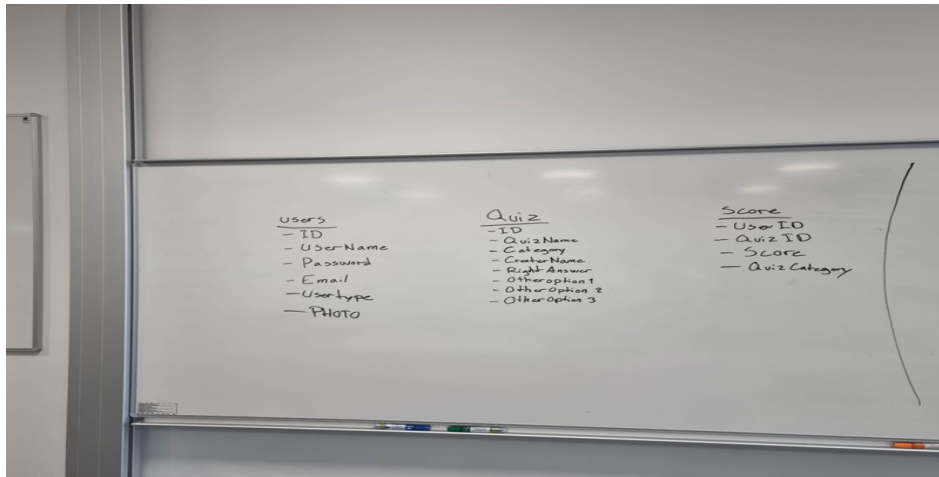 Users
- ID
- UserName
- Password
- Email
- Usertype
- PHOTO
Quiz
- ID
- QuizName
- Category
- CraterName
- Right Answer
- Otheroption1
- OtherOption 2
- OtherOption 3
Score
- UserID
- QuizID
- Score
- QuizCategory